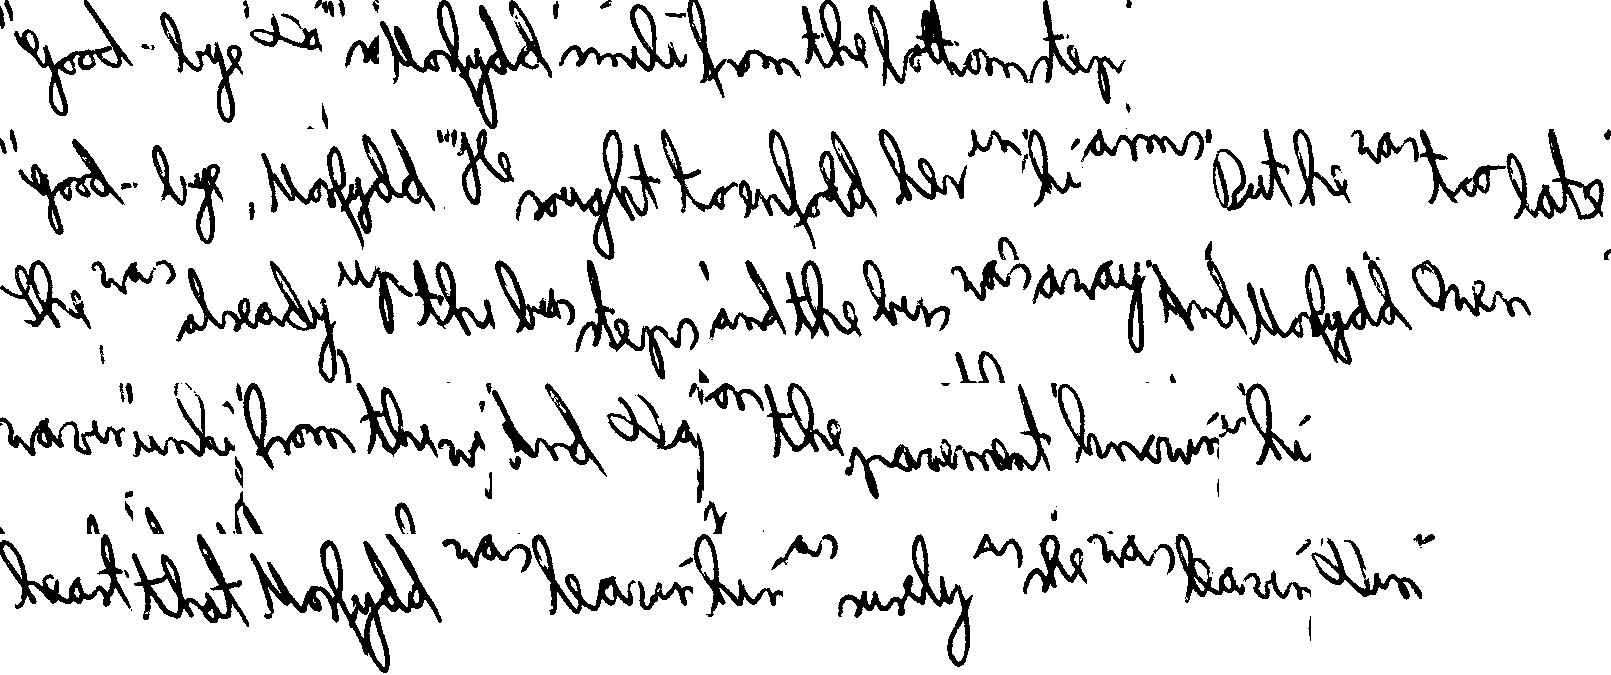 "Good-bye Da" Morfydd smile from the bottom step
"Good-bye, Morfydd" He sought to enfold her in hi arms. But he was too late
She was already up the bus steps and the bus was away. And Morfydd Owen
from the And on the pavement knowin in hi
heart that Morfydd was leavin him as surely as she was leavin